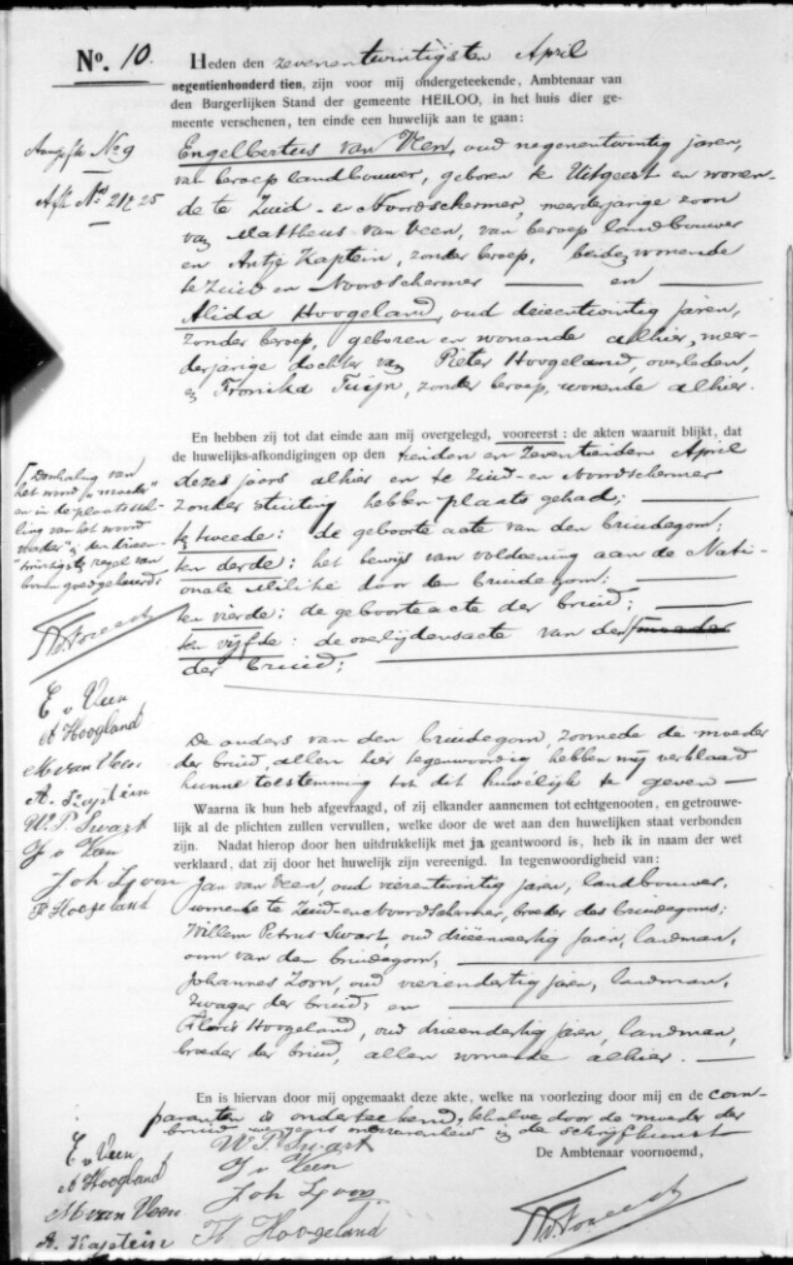 Nº. 10. Heden den zevenentwintigsten April
negentienhonderd tien, zijn voor mij ondergeteekende, Ambtenaar van
den Burgerlijken Stand der gemeente HEILOO, in het huis dier ge-
meente verschenen, ten einde een huwelijk aan te gaan:
Nº 9
Engelbertus van Veen, oud negenentwintig jaren,
van beroep landbouwer, geboren te Uitgeest en wonen-
de te Zuid- en Noordschermer, meerderjarige zoon
van Mattheus van Veen, van beroep landbouwer
en Antje Kaptein, zonder beroep, beiden wonende
te Zuid en Noordschermer — en —
Alida Hoogeland, oud drieentwintig jaren,
zonder beroep, geboren en wonende alhier, meer-
derjarige dochter van Pieter Hoogeland, overleden,
en Fronika Tuijn, zonder beroep, wonende alhier.
En hebben zij tot dat einde aan mij overgelegd, vooreerst: de akten waaruit blijkt, dat
de huwelijks-afkondigingen op den tienden en zeventienden April
dezes jaars alhier en te Zuid- en Noordschermer
zonder stuiting hebben plaats gehad;
ten tweede: de geboorte acte van den bruidegom;
ten derde: het bewijs van voldoening aan de Nati-
onale Militie door den bruidegom;
ten vierde: de geboorteacte der bruid;
ten vijfde: de overlijdensacte van den moeder
der bruid;
Doorhaling van
het woord "moeder"
en in de plaatsstel-
ling van het woord
den drieen-
twintigsten regel van
boven goedgekeurd.
E v Veen
A Hoogland
M van Veen
A. Kaptein
W. P. Swart
J v Veen
Joh Zoon
F Hoogeland
De ouders van den bruidegom, zoomede de moeder
der bruid, allen hier tegenwoordig hebben mij verklaard
hunne toestemming tot dit huwelijk te geven —
Waarna ik hun heb afgevraagd, of zij elkander aannemen tot echtgenooten, en getrouwe-
lijk al de plichten zullen vervullen, welke door de wet aan den huwelijken staat verbonden
zijn. Nadat hierop door hen uitdrukkelijk met ja geantwoord is, heb ik in naam der wet
verklaard, dat zij door het huwelijk zijn vereenigd. In tegenwoordigheid van:
Jan van Veen, oud vierentwintig jaren, landbouwer,
wonende te Zuid- en Noordschermer, broeder des bruidegoms;
Willem Petrus Swart, oud drieenveertig jaren, landman,
oom van den bruidegom,
Johannes Zoon, oud vierendertig jaren, landman,
zwager der bruid; en
Floris Hoogeland, oud drieendertig jaren, landman,
broeder der bruid, allen wonende alhier.
En is hiervan door mij opgemaakt deze akte, welke na voorlezing door mij en de com-
paranten is onderteekend, behalve door de moeder der
bruid wegens onervarenheid in de schrijfkunst
De Ambtenaar voornoemd,
E v Veen
A Hoogland
M van Veen
A. Kaptein
W P Swart
J v Veen
Joh Zoon
Fl Hoogeland